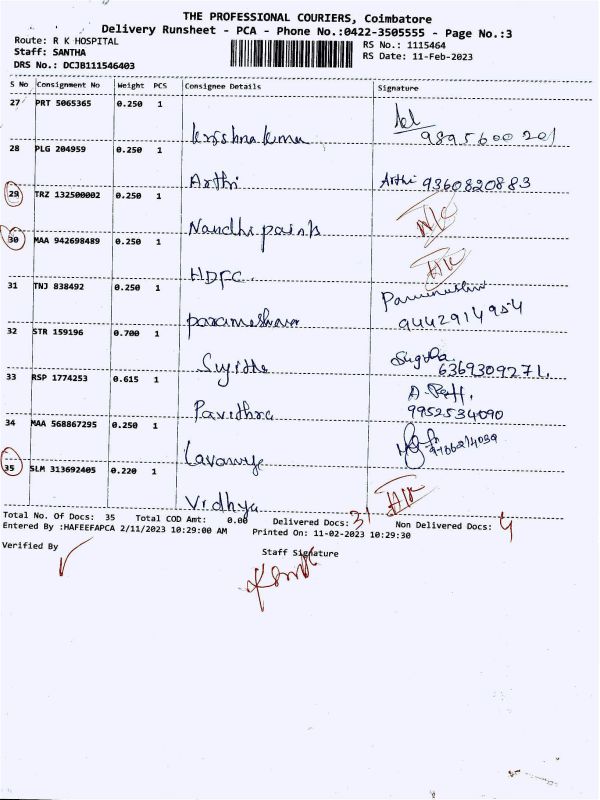 THE PROFESSIONAL COURIERS, Coimbatore
Delivery Runsheet - PCA - Phone No.:0422-3505555 - Page No.:3
Route: R K HOSPITAL
Staff: SANTHA
DRS No.: DCJB111546403
RS No.: 1115464
RS Date: 11-Feb-2023
S No Consignment No Weight PCS Consignee Details Signature
27 PRT 5065365 0.250 1
Krishna kumar 9895600201
28 PLG 204959 0.250 1
Arthi Arthi 9360820883
29 TRZ 132500002 0.250 1
Nandhi paints
30 MAA 942698489 0.250 1
HDFC
31 TNJ 838492 0.250 1
parameshwara 9442914954
32 STR 159196 0.700 1
Sujitha 6369309271.
33 RSP 1774253 0.615 1
Pavithra 9952534090
34 MAA 568867295 0.250 1
Lavanya
35 SLM 313692405 0.220 1
Vidhya
Total No. Of Docs: 35 Total COD Amt: 0.00 Delivered Docs: 31 Non Delivered Docs: 4
Entered By :HAFEEFAPCA 2/11/2023 10:29:00 AM Printed On: 11-02-2023 10:29:30
Verified By
Staff Signature